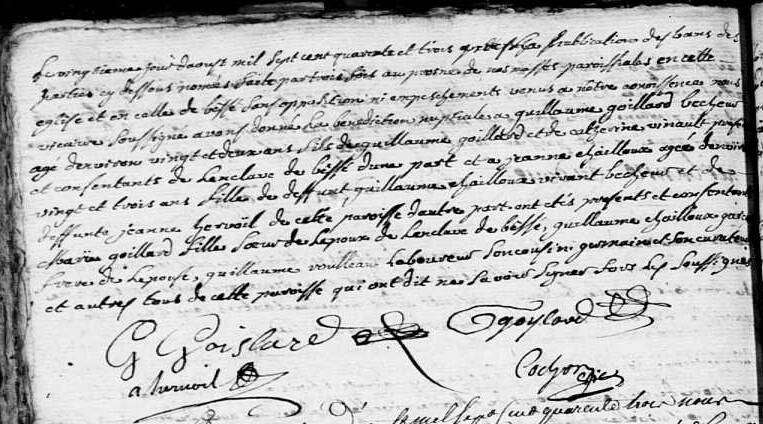 Le vingtieme jour daoust mil sept cent quarente et trois apres la publication des bans des
parties cy dessous només faite par trois fois au prosne de nos messes paroissiales en cette
eglise et en celle de bessé sans opposition ni empeschements venus a nôtre conoissence nous
vicaire soussigné avons donné la benediction nuptiale a guillaume goillard becheur
agé denviron vingt et deux ans fils de guillaume goillard et de catherine vinault presents
et consentants de lenclave de bessé dune part et a jeanne chailloux agée denviron
vingt et trois ans fille de deffunt guillaume chailloux vivant becheur et de
deffunte jeanne hervoil de cette paroisse dautre part ont etés presents et consentants
goillard fille sœur de lepoux de lenclave de bessé, guillaume chailloux garcon
frere de lepouse, guillaume laboureur son cousin germain et son curateur
et autres tous de cette paroisse qui ont dit ne savoir signer fors les soussignés
G Goislard goylard
a hervoil Cochon
mil sept cent quarente trois nous